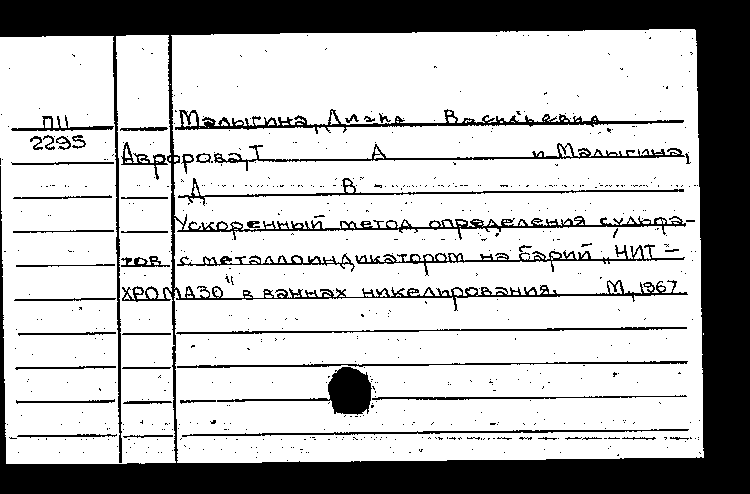 П11 Малыгина, Диана Васильевна
2295
Авророва, Т А и Малыгина,
Д В -
Ускоренный метод определения сульфа-
тов с металлоиндикатором на барий „НИТ-
ХРОМАЗО" в ваннах никелирования. М, 1967